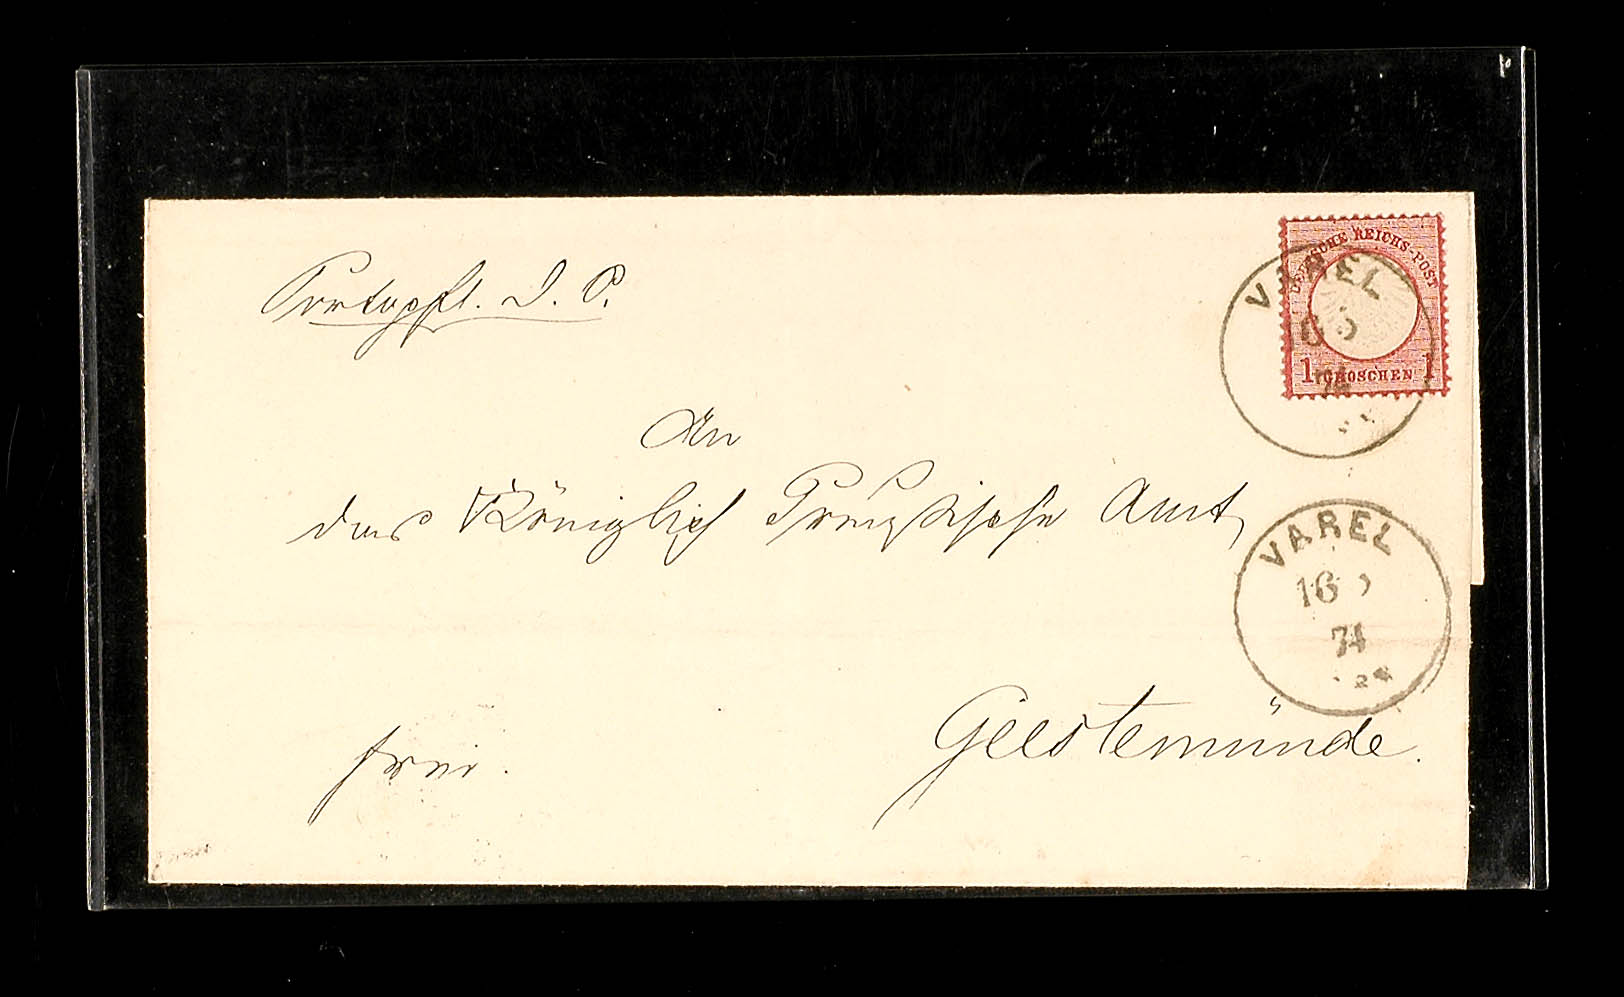 Portopfl. D. S.
DEUTSCHE REICHS-POST
1 GROSCHEN 1
VAREL
74
An
das Königlich Preußische Amt
VAREL
16
74
Geestemünde.
frei.